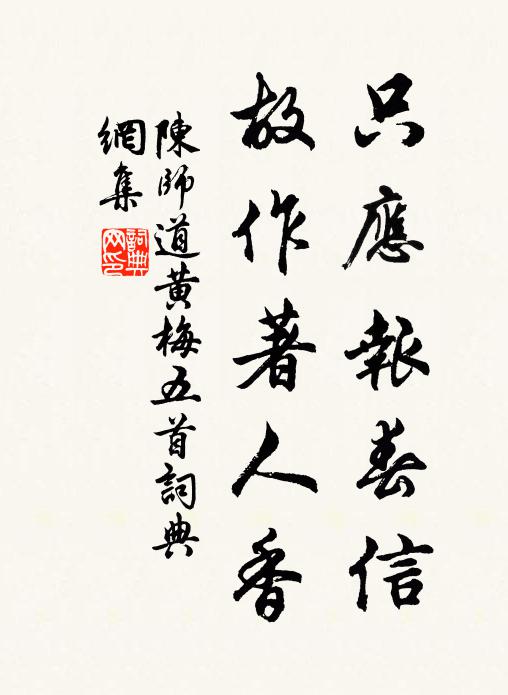 只應報春信
故作著人香
陳師道黃梅五首詞典
網集
詞典網印